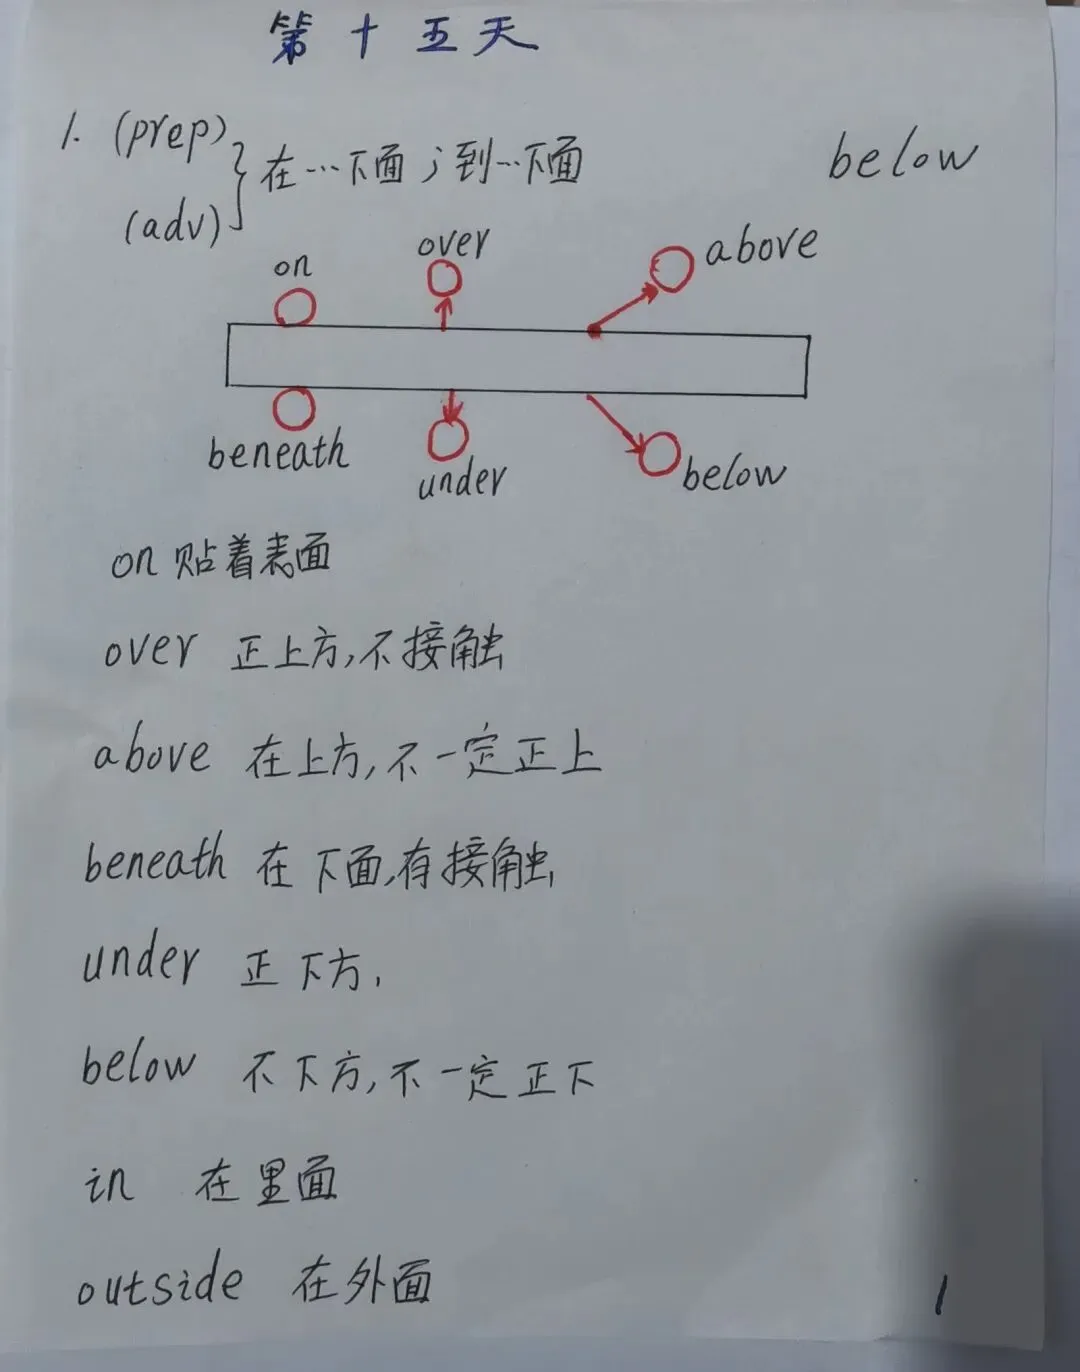 第十五天
1. (prep)
(adv) } 在…下面；到…下面 below
on over above
beneath under below
on 贴着表面
over 正上方,不接触
above 在上方,不一定正上
beneath 在下面,有接触
under 正下方,
below 不下方,不一定正下
in 在里面
outside 在外面
1